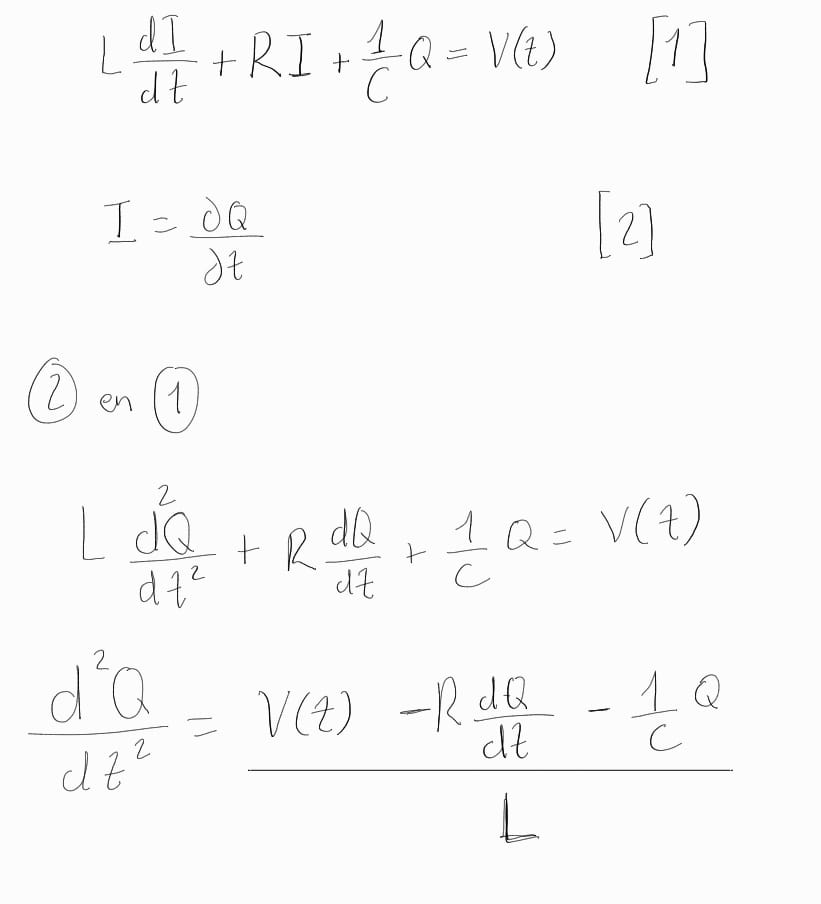 L dI/dt + RI + 1/C Q = V(t) [1]
I = ∂Q/∂t [2]
② en ①
L d²Q/dt² + R dQ/dt + 1/C Q = V(t)
d²Q/dt² = (V(t) - R dQ/dt - 1/C Q)/L